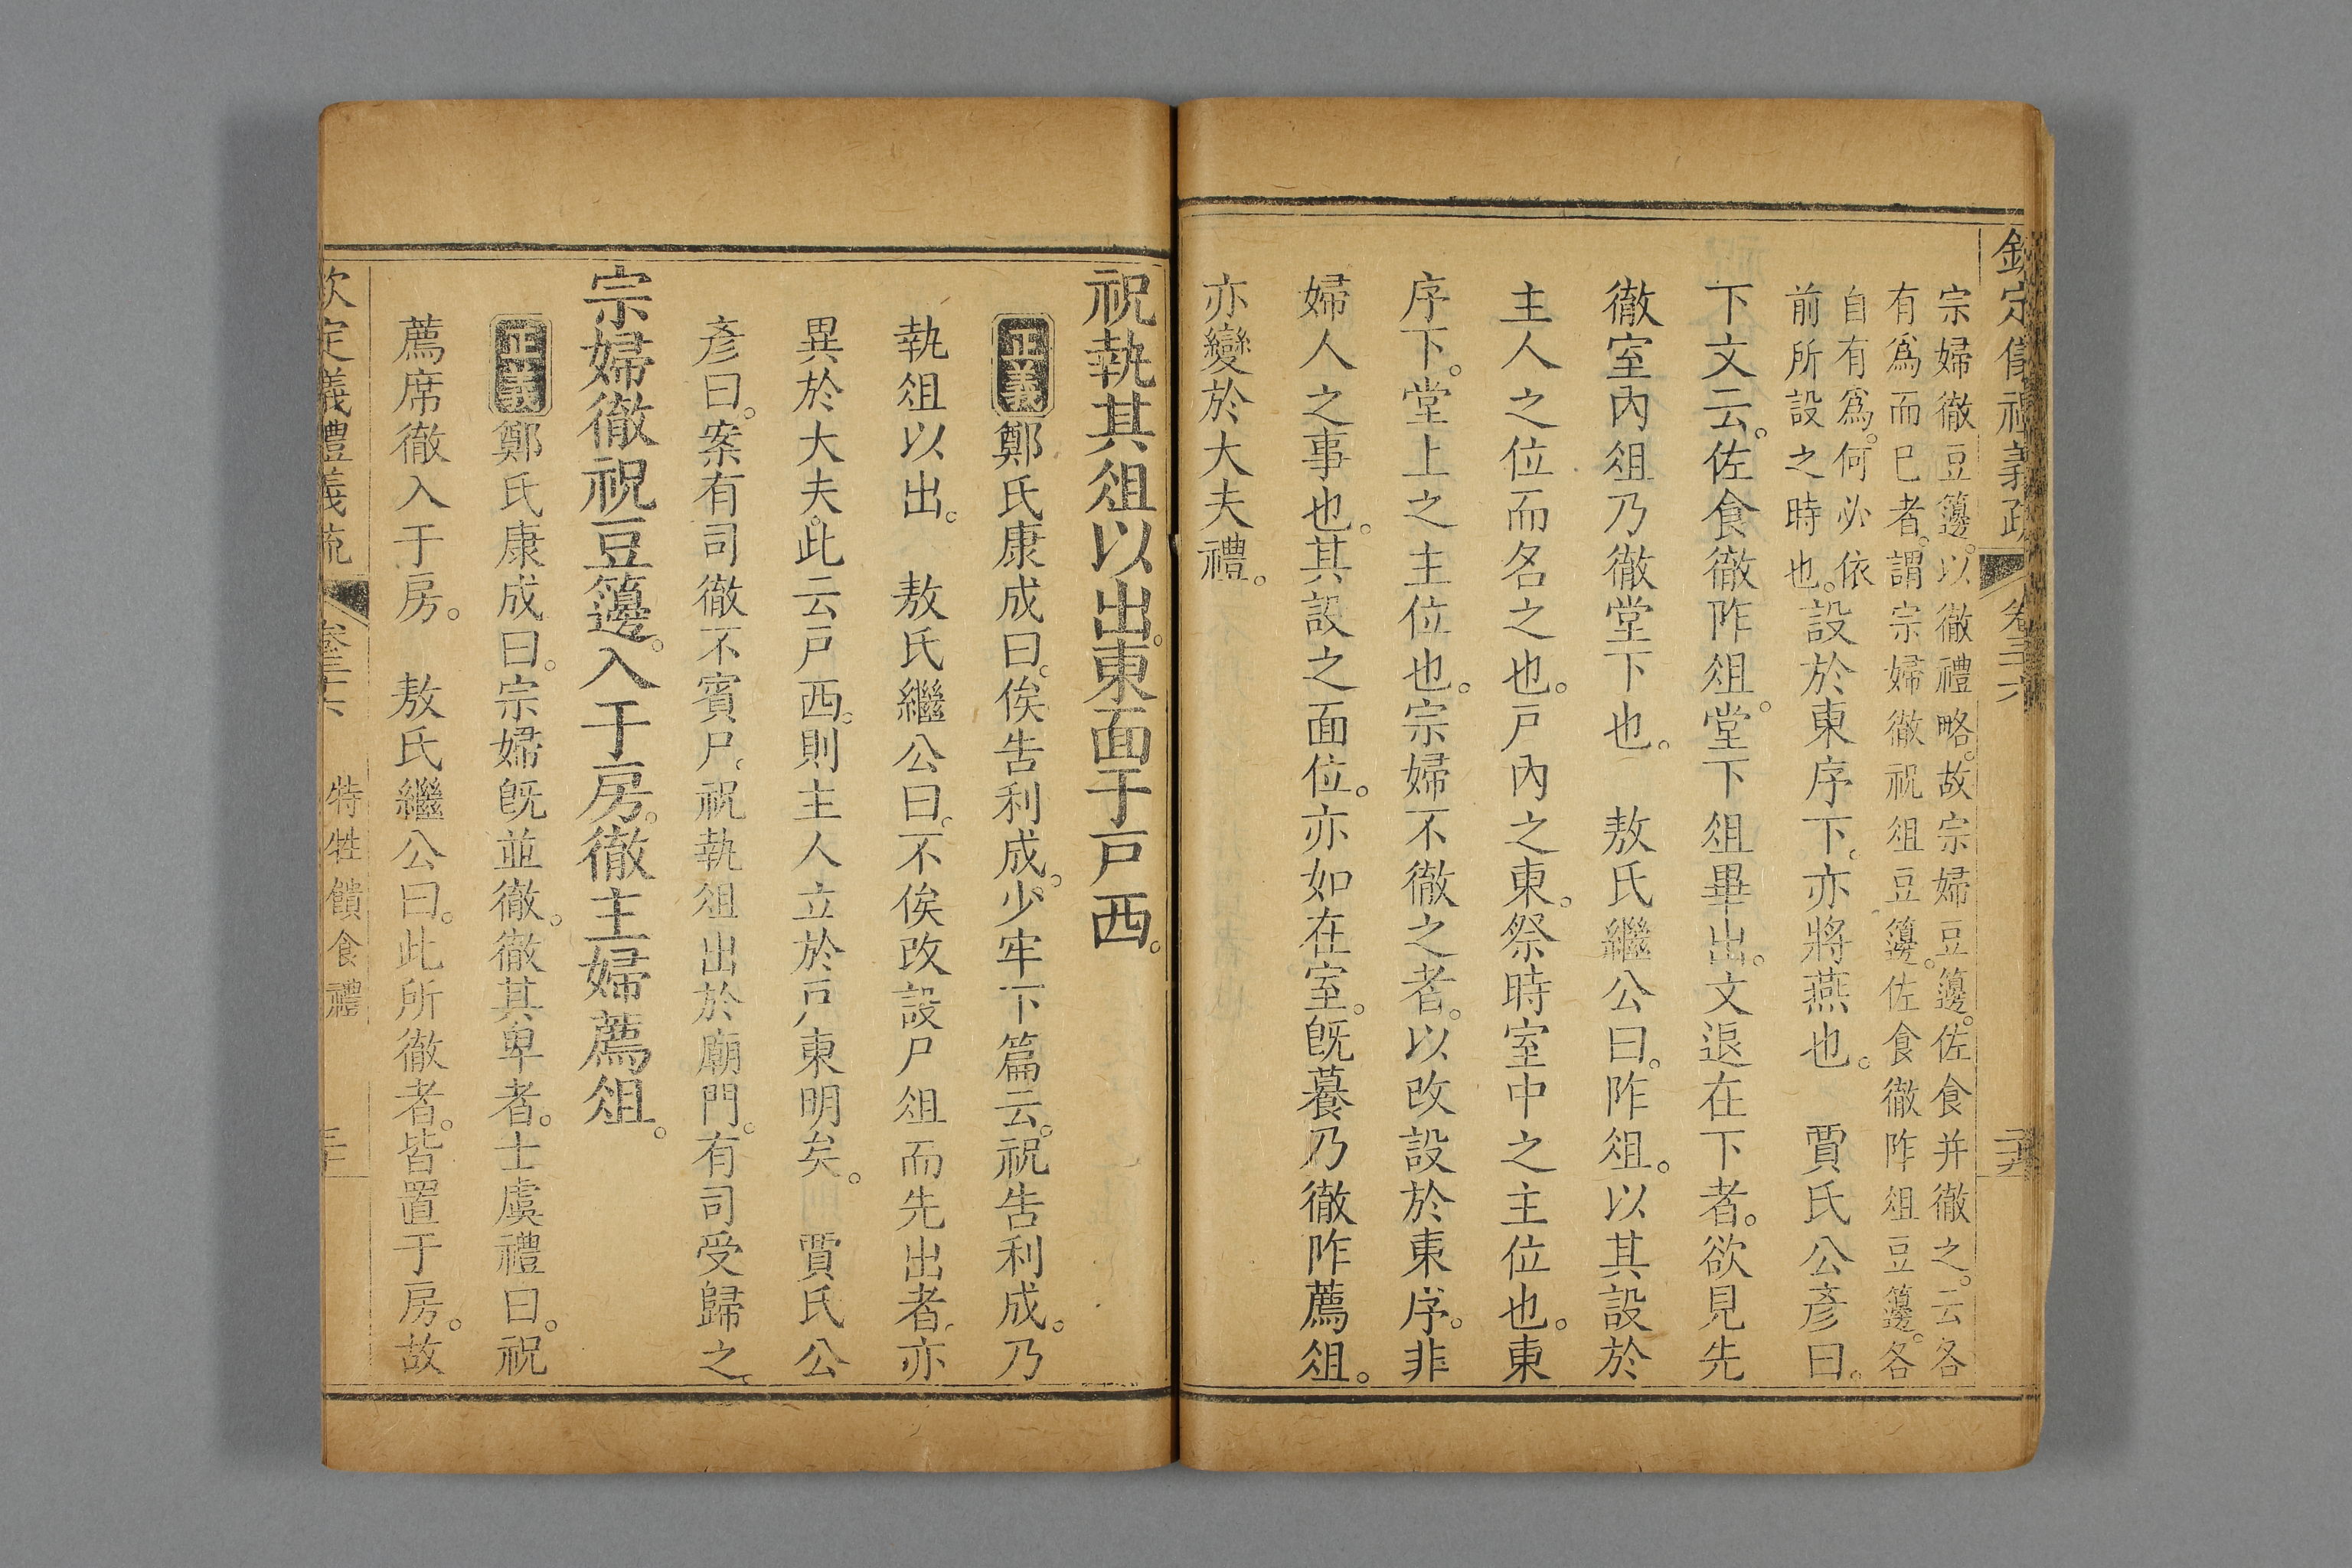 欽定儀禮義疏 卷三十六
宗婦徹豆籩。以徹禮略。故宗婦豆籩。佐食并徹之。云各
有爲而已者。謂宗婦徹祝俎豆籩。佐食徹阼俎豆籩。各
自有爲。何必依
前所設之時也。設於東序下。亦將燕也。 賈氏公彥曰。
下文云。佐食徹阼俎。堂下俎畢出。文退在下者。欲見先
徹室內俎乃徹堂下也。 敖氏繼公曰。阼俎。以其設於
主人之位而名之也。戸內之東。祭時室中之主位也。東
序下。堂上之主位也。宗婦不徹之者。以改設於東序。非
婦人之事也。其設之面位。亦如在室。旣養乃徹阼薦俎。
亦變於大夫禮。
祝執其俎以出。東面于戸西。
正義鄭氏康成曰。俟告利成。少牢下篇云。祝告利成。乃
執俎以出。 敖氏繼公曰。不俟改設尸俎而先出者。亦
異於大夫。此云戸西。則主人立於戸東明矣。 賈氏公
彥曰。案有司徹不賓尸。祝執俎出於廟門。有司受歸之。
宗婦徹祝豆籩。入于房。徹主婦薦俎。
正義鄭氏康成曰。宗婦旣並徹。徹其卑者。士虞禮曰。祝
薦席徹入于房。 敖氏繼公曰。此所徹者。皆置于房。故
欽定義禮義疏 卷三十六 特牲饋食禮